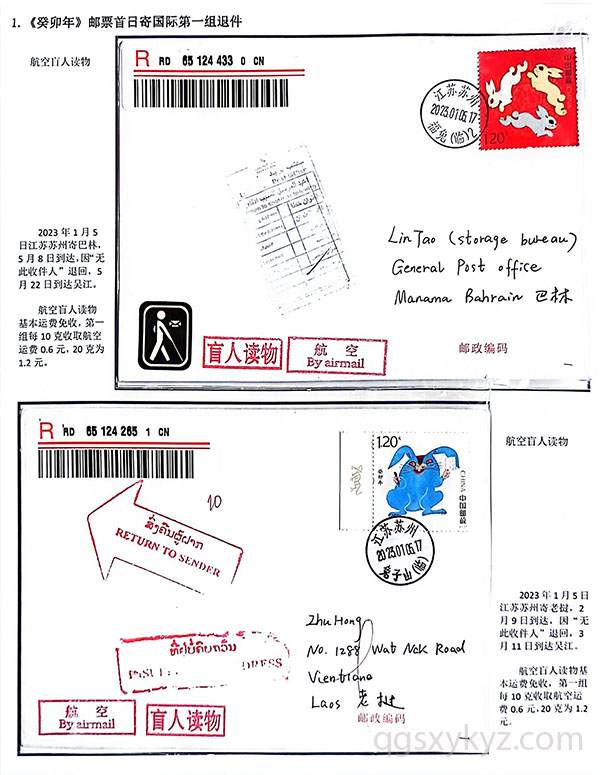 1. 《癸卯年》邮票首日寄国际第一组退件
航空盲人读物
R RD 65 124 433 0 CN
中国邮政
120
江苏苏州
2023.01.05.17
(临)2
2023 年 1 月 5
日江苏苏州寄巴林,
5 月 8 日到达,因“无
此收件人”退回, 5
月 22 日到达吴江。
航空盲人读物
基本运费免收,第一
组每 10 克收取航空
运费 0.6 元, 20 克为
1.2 元。
Lin Tao (storage bureau)
General Post office
Manama Bahrain 巴林
盲人读物
航 空
By airmail
邮政编码
R RD 65 124 265 1 CN
航空盲人读物
10
1.20
CHINA 中国邮政
江苏苏州
2023.01.05.17
(临)
ສົ່ງຄືນຜູ້ຝາກ
RETURN TO SENDER
Zhu Hong
No. 1288 Wat Nak Road
Vientiane
Laos 老挝
邮政编码
航 空
By airmail
盲人读物
2023 年 1 月 5 日
江苏苏州寄老挝, 2
月 9 日到达, 因 “无
此收件人”退回, 3
月 11 日到达吴江。
航空盲人读物基
本运费免收, 第一组
每 10 克收取航空运
费 0.6 元, 20 克为 1.2
元。
qgsxykyz.com